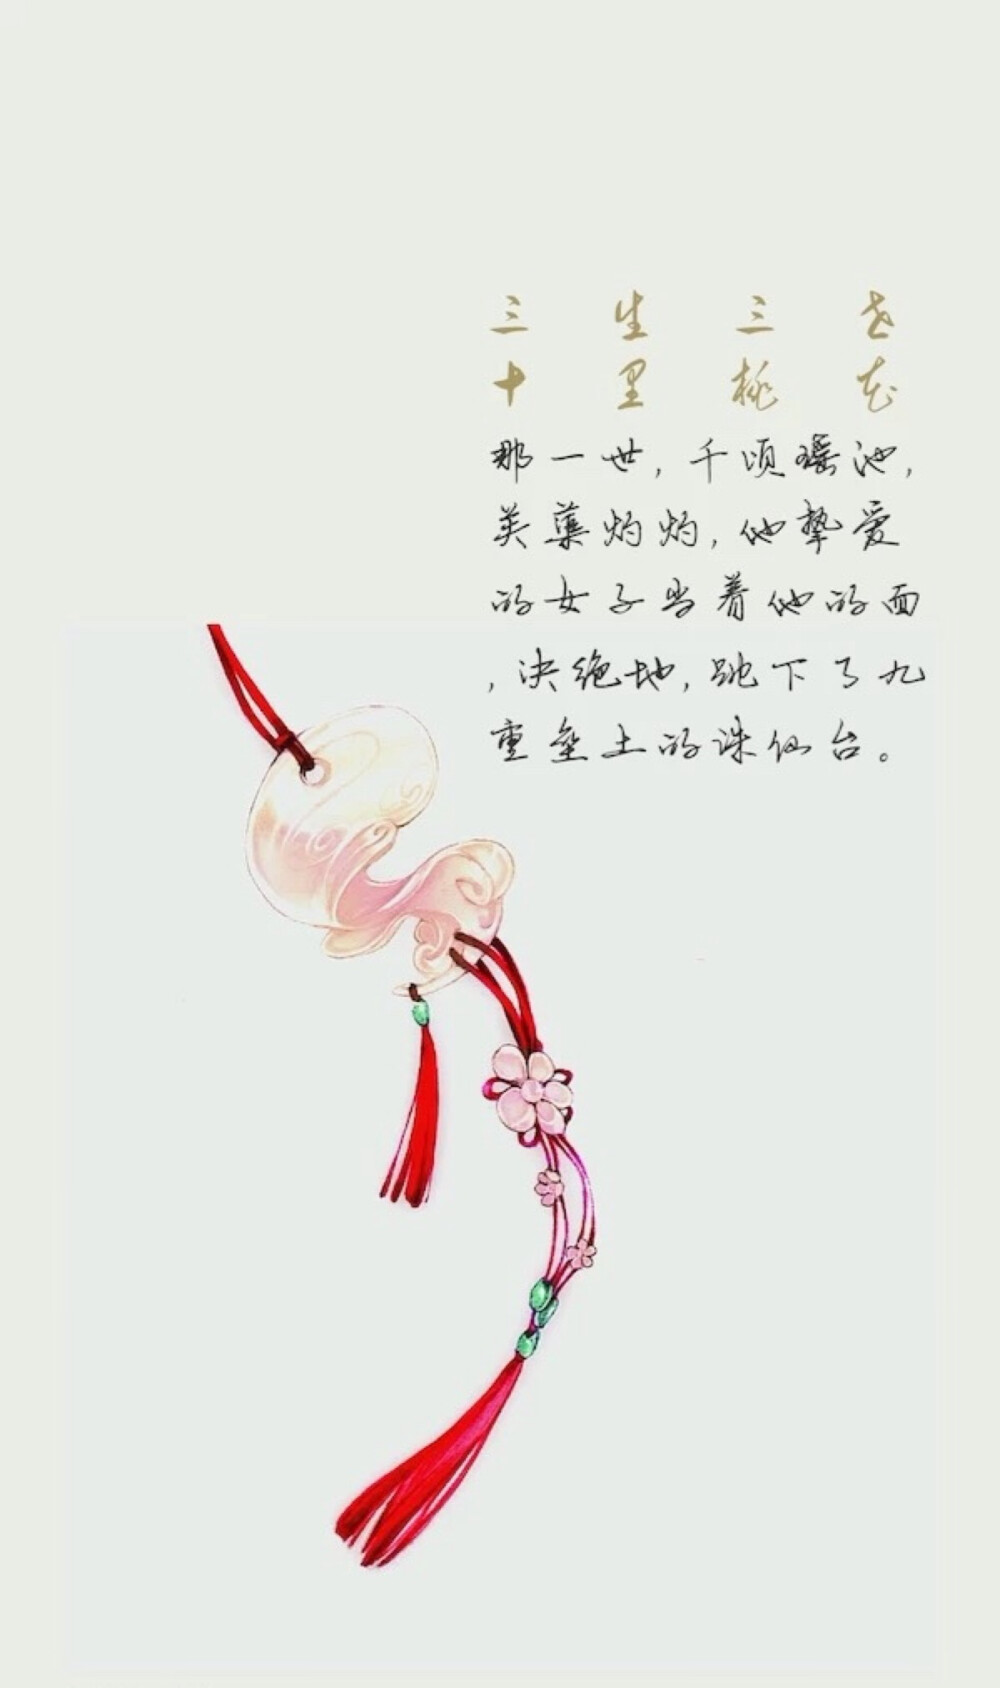 三生三世
十里桃花
那一世，千顷瑶池，
芙蕖灼灼，他挚爱
的女子当着他的面
，决绝地，跳下了九
重垒土的诛仙台。